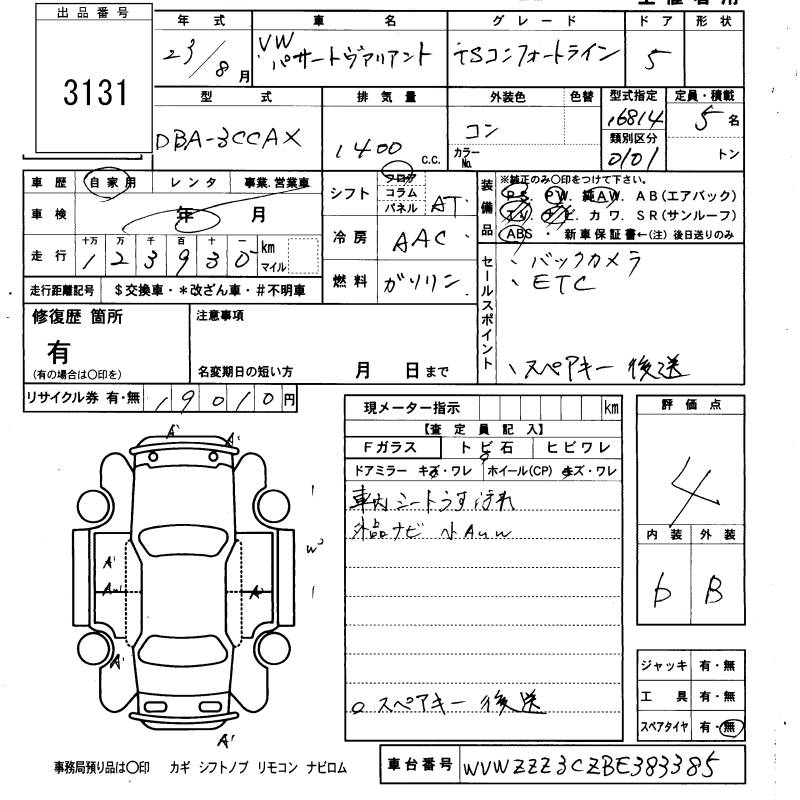 出品番号
3131
年式 車名 グレード ドア 形状
23/8月 VW パサートヴァリアント TSコンフォートライン 5
型式 排気量 外装色 色替 型式指定 定員・積載
DBA-3CCAX 1400 C.C. コン カラーNo. 16814 5名
類別区分
0101 トン
車歴 自家用 レンタ 事業.営業車
車検 年 月
走行 十万 万 千 百 十 一 km マイル
123930
走行距離記号 $交換車・*改ざん車・#不明車
シフト フロア コラム パネル AT
冷房 AAC
燃料 ガソリン
装備品
※純正のみ〇印をつけて下さい。
PS. PW. 純AW. AB(エアバック)
TV. ナビ. カワ. SR(サンルーフ)
ABS ・ 新車保証書←(注)後日送りのみ
セールスポイント
、バックカメラ
、ETC
、スペアキー 後送
修復歴 箇所
有
(有の場合は〇印を)
注意事項
名変期日の短い方 月 日まで
リサイクル券 有・無 19010円
現メーター指示 km
【査定員記入】
Fガラス トビ石 ヒビワレ
ドアミラー キズ・ワレ ホイール(CP) キズ・ワレ
車内シートうす汚れ
外品ナビ 小AUW
o スペアキー 後送
評価点
4
内装 外装
b B
ジャッキ 有・無
工具 有・無
スペアタイヤ 有・無
A' A'
W3
A'
A-1 A'
A'
A'
事務局預り品は〇印 カギ シフトノブ リモコン ナビロム
車台番号 WVWZZZ3CZBE383385